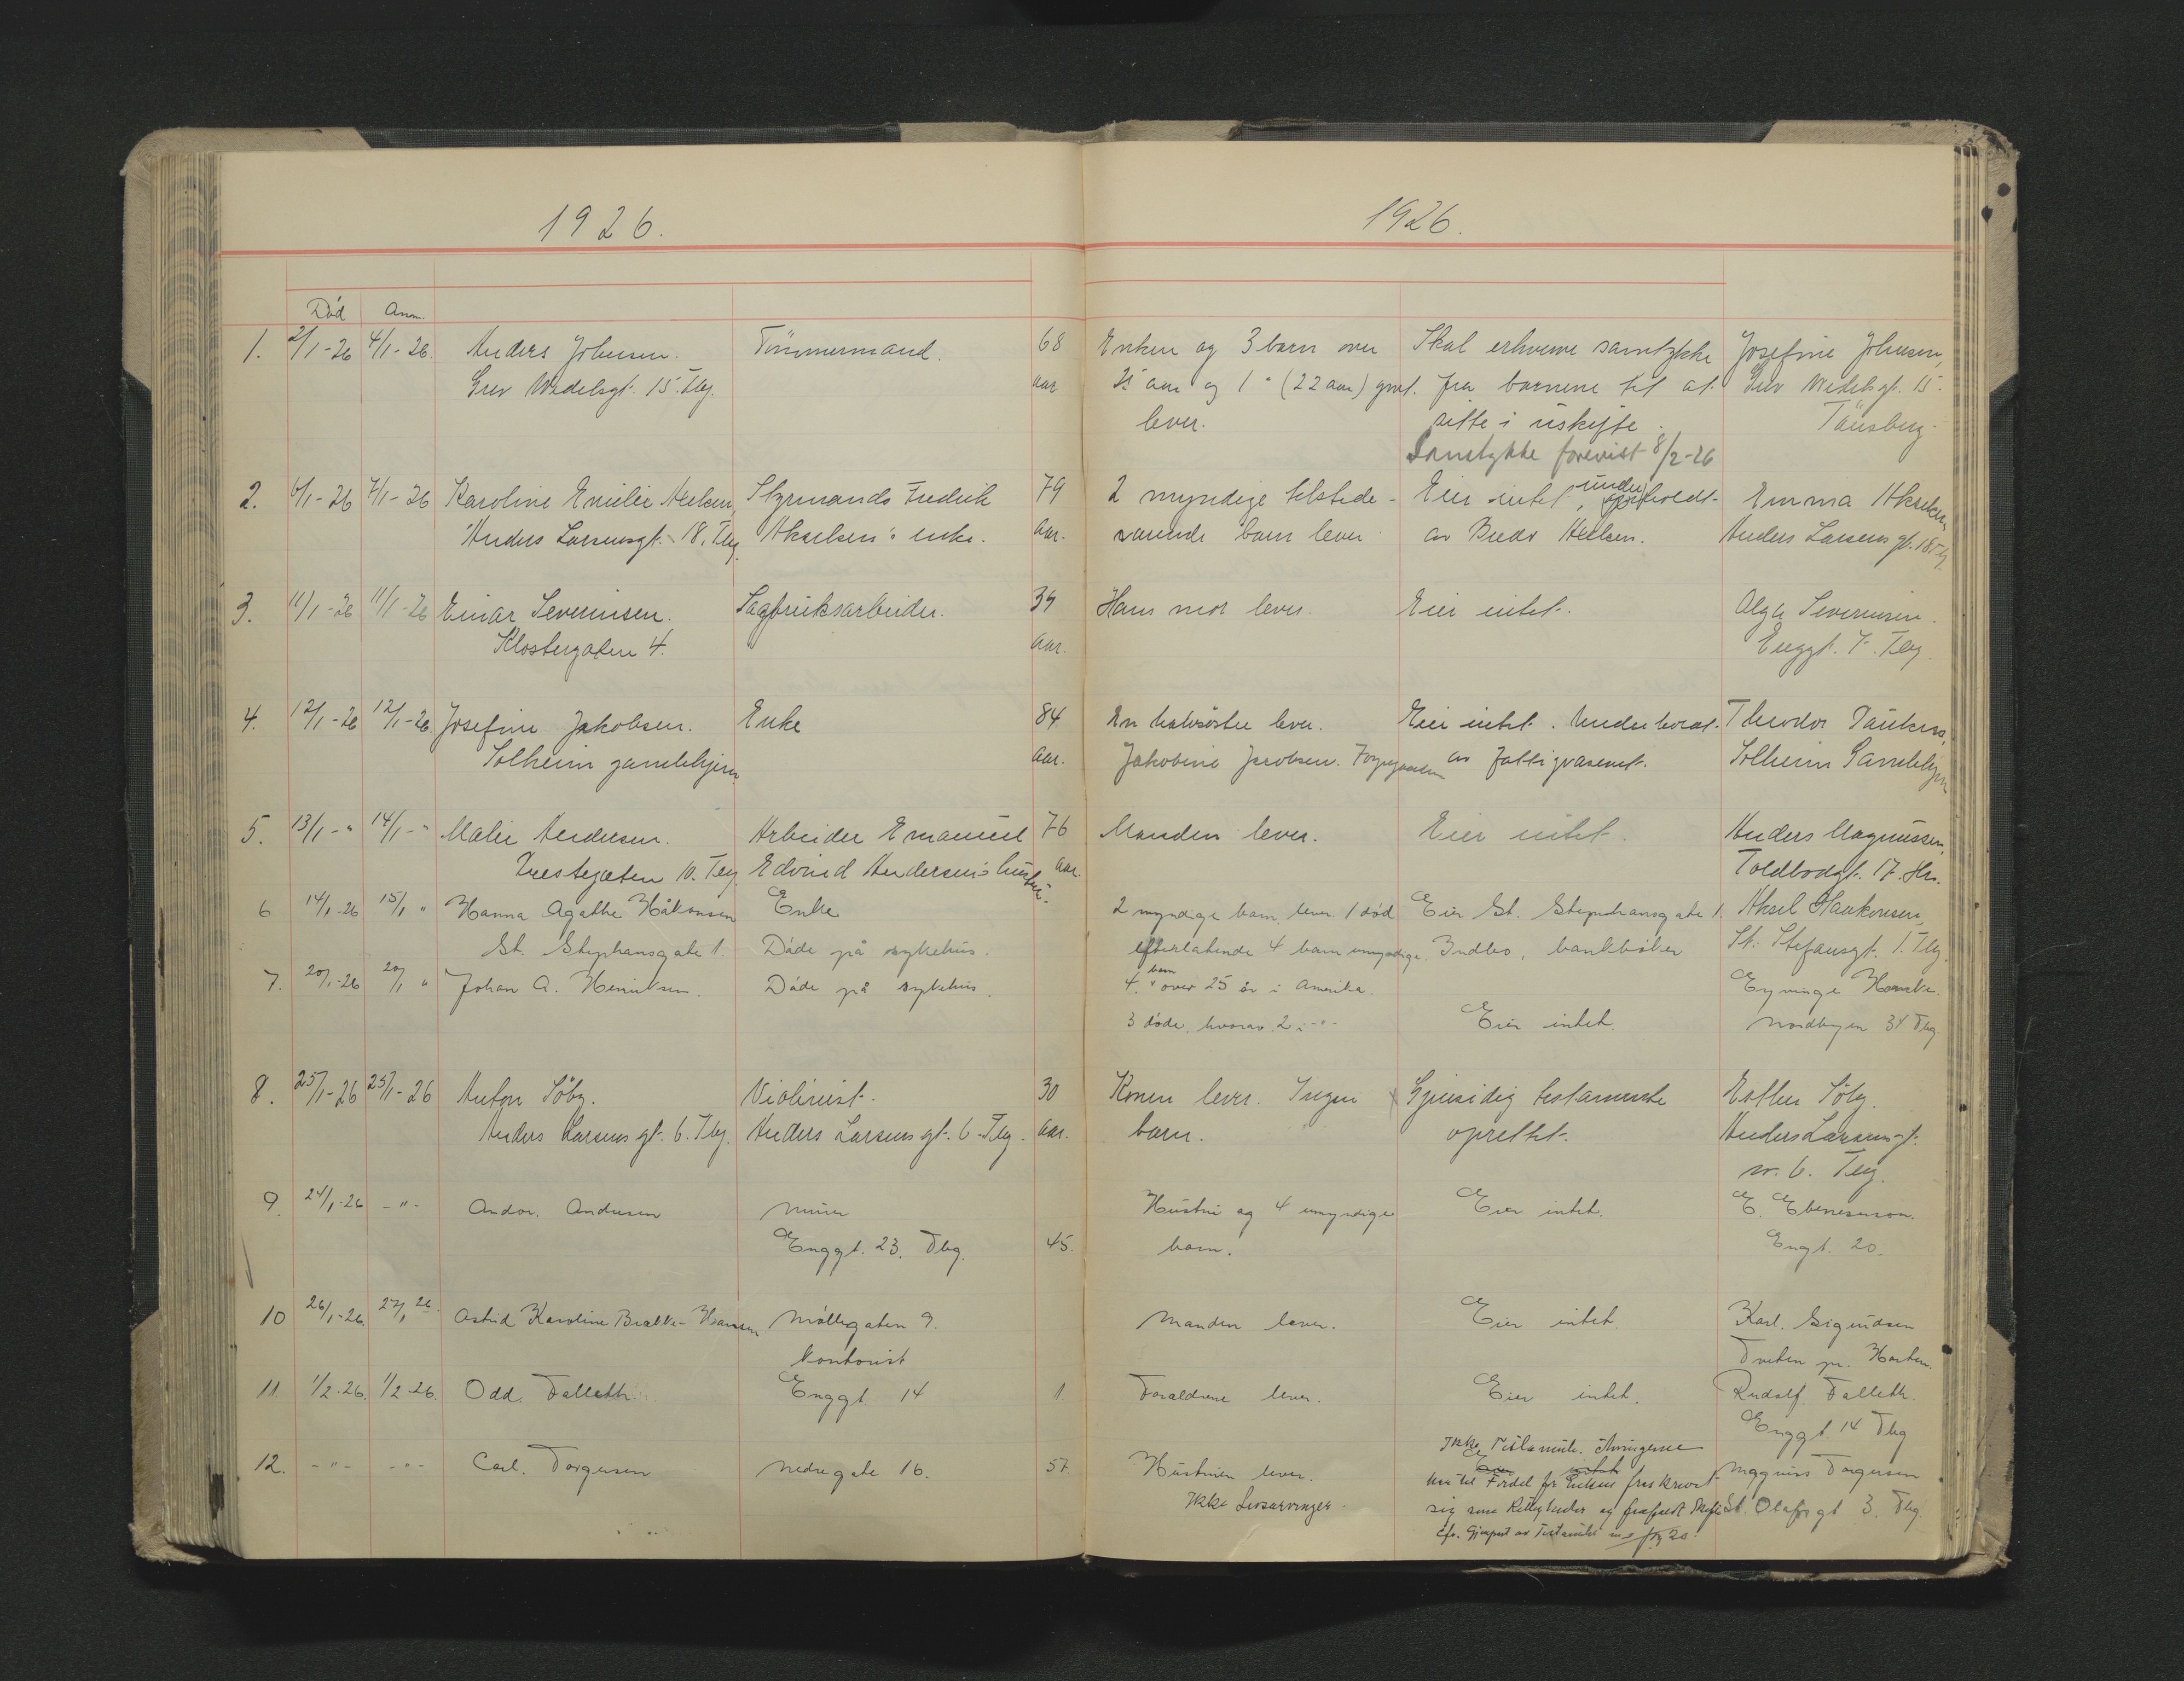 1926.
1926.
Död Anm.
1. 2/1-26 4/1-26. Anders Johnsen. Tömmermand. 68 Enken og 3 barn over Skal erhverve samtykke Josefine Johnsen,
Grev Wedelsgt. 15. Tbg. aar 25 aar og 1 " (22 aar) gml. fra barnene til at Grev Wedelsgt. 15.
lever. sitte i uskifte. Tönsberg.
Samtykke forevist 8/2-26
2. 6/1-26 7/1-26 Karoline Emilie Styrmands Fredrik 79 2 myndige tilstede- Eier intet, underholdt Emma Akselsen
Anders Larsensgt. 18. Tbg. Akselsen's enke. aar. værende barn lever av Anders Larsens gt. 18 Tbg
3. 11/1-26 11/1-26 Einar Severinsen. Sagbruksarbeider. 39 Hans mor lever. Eier intet. Olga Severinsen.
Klostergaten 4. aar. Enggt. 7. Tbg.
4. 12/1-26 12/1-26 Josefine Jakobsen. Enke 84 En halvsöster lever. Eier intet. Underholdt Theodor
Solheim gamlehjem aar. Jakobine Jacobsen. av fattigvæsenet. Solheim Gamlehjem
5. 13/1-" 14/1-" Malie Andersen. Arbeider Emanuel 76 Manden lever. Eier intet. Anders Magnussen,
Tverstegaten 10. Tbg. Edvind Andersen's hustru. aar. Toldbodgt. 17. Hrs.
6 14/1-26 15/1 " Hanna Agathe Håkonsen Enke 2 myndige barn lever. 1 död Eier St. Stephansgate 1. Aksel Haakonsen,
St. Stephansgate 1. Döde på sykehus. efterlatende 4 barn umyndige. Indbo, bankböker St. Stefansgt. 1. Tbg.
7. 20/1-26 20/1 " Johan A. Henriksen. Döde på sykehus. 4 barn over 25 år i Amerika.
3 döde, hvorav 2 -"- Eier intet. Nordbyen 34 Tbg.
8. 25/1-26 25/1-26 Anton Söby. Violinist. 30 Konen lever. Ingen Gjensidig testamente Esther Söby.
Anders Larsens gt. 6. Tbg. Anders Larsens gt. 6 Tbg. aar. barn. oprettet. Anders Larsens gt.
nr. 6. Tbg.
9. 24/1-26 -"- Andor. Andresen murer Hustru og 4 umyndige Eier intet. E. Ebenesersen.
Enggt. 23. Tbg. 45. barn. Engt. 20.
10 26/1-26. 27/1 26. Astrid Karoline Hansen Möllegaten 9. Manden lever. Eier intet. Karl. Sigurdsen
kontorist Tveten pr. Horten.
11. 1/2-26. 1/2-26. Odd. Falleth. Enggt. 14 1. Foreldrene lever. Eier intet. Rudolf Falleth.
Enggt 14 Tbg
12. -"- -"- Carl. Torgersen Nedregate 16. 57 Hustruen lever. Ikke Testamente. Arvingerne Magnus Torgersen
Ikke Livsarvinger. har til Fordel for Enken fraskrevet
sig sine Rettigheder og frafaldt Skifte St. Olafs gt 3. Tbg.
cfr. Gjenpart av Testamente